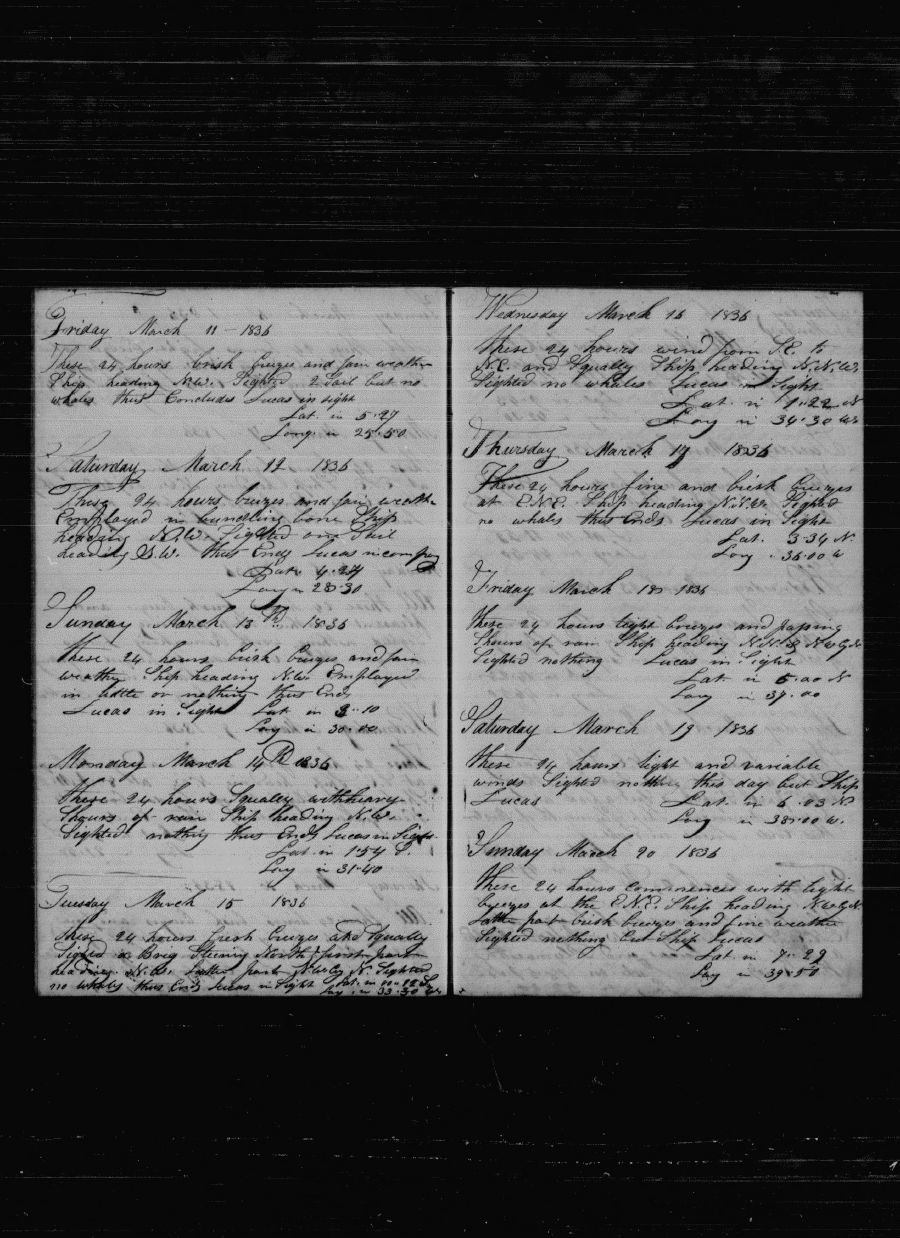 Friday March 11 - 1836
These 24 hours brisk breezes and fair weather
Ship heading N.W. Sighted 2 Sail but no
whales thus Concludes Lucas in sight
Lat. in 5.27
Long. in 25.50
Saturday March 12 1836
These 24 hours breezes and fair weather
Employed in bundling bone Ship
heading N.W. Sighted one Sail
heading S.W. thus Ends Lucas in company
Lat. 4.24
Long in 28.30
Sunday March 13th 1836
these 24 hours brisk breezes and fair
weather Ship heading N.W. Employed
in little or nothing thus Ends
Lucas in Sight Lat in 3.10
Long in 30.00
Monday March 14th 1836
these 24 hours Squally with heavy
Shours of rain Ship heading N.W.
Sighted nothing thus Ends Lucas in Sight
Lat. in 1.54 S.
Long in 31.40
Tuesday March 15 1836
these 24 hours fresh breezes and Squally
Sighted a Brig Steering North first part
heading N.W. Latter part N.W by N. Sighted
no whales thus Ends Lucas in Sight Lat. in 00.12 S.
Long. in 33.30 W.
Wednesday March 16 1836
these 24 hours wind from S.E. to
N.E. and Squally Ship heading N.N.W.
Sighted no whales Lucas in Sight
Lat. in 1.22 N
Long in 34.30 W.
Thursday March 17 1836
These 24 hours fine and brisk breezes
at E.N.E. Ship heading N.N.W. Sighted
no whales thus Ends Lucas in Sight
Lat. 3.34 N.
Long. 36.00 W
Friday March 18 1836
these 24 hours light breezes and passing
Shours of rain Ship heading N.W. & N.W by N
Sighted nothing Lucas in Sight
Lat in 5.00 N
Long in 37.00
Saturday March 19 1836
these 24 hours light and variable
winds Sighted nothing this day but Ship
Lucas Lat. in 6.03 N
Long in 38.00 W.
Sunday March 20 1836
these 24 hours commences with light
breezes at the E.N.E. Ship heading N.W by N
Latter part brisk breezes and fine weather
Sighted nothing but Ship Lucas
Lat in 7.29
Long in 39.50